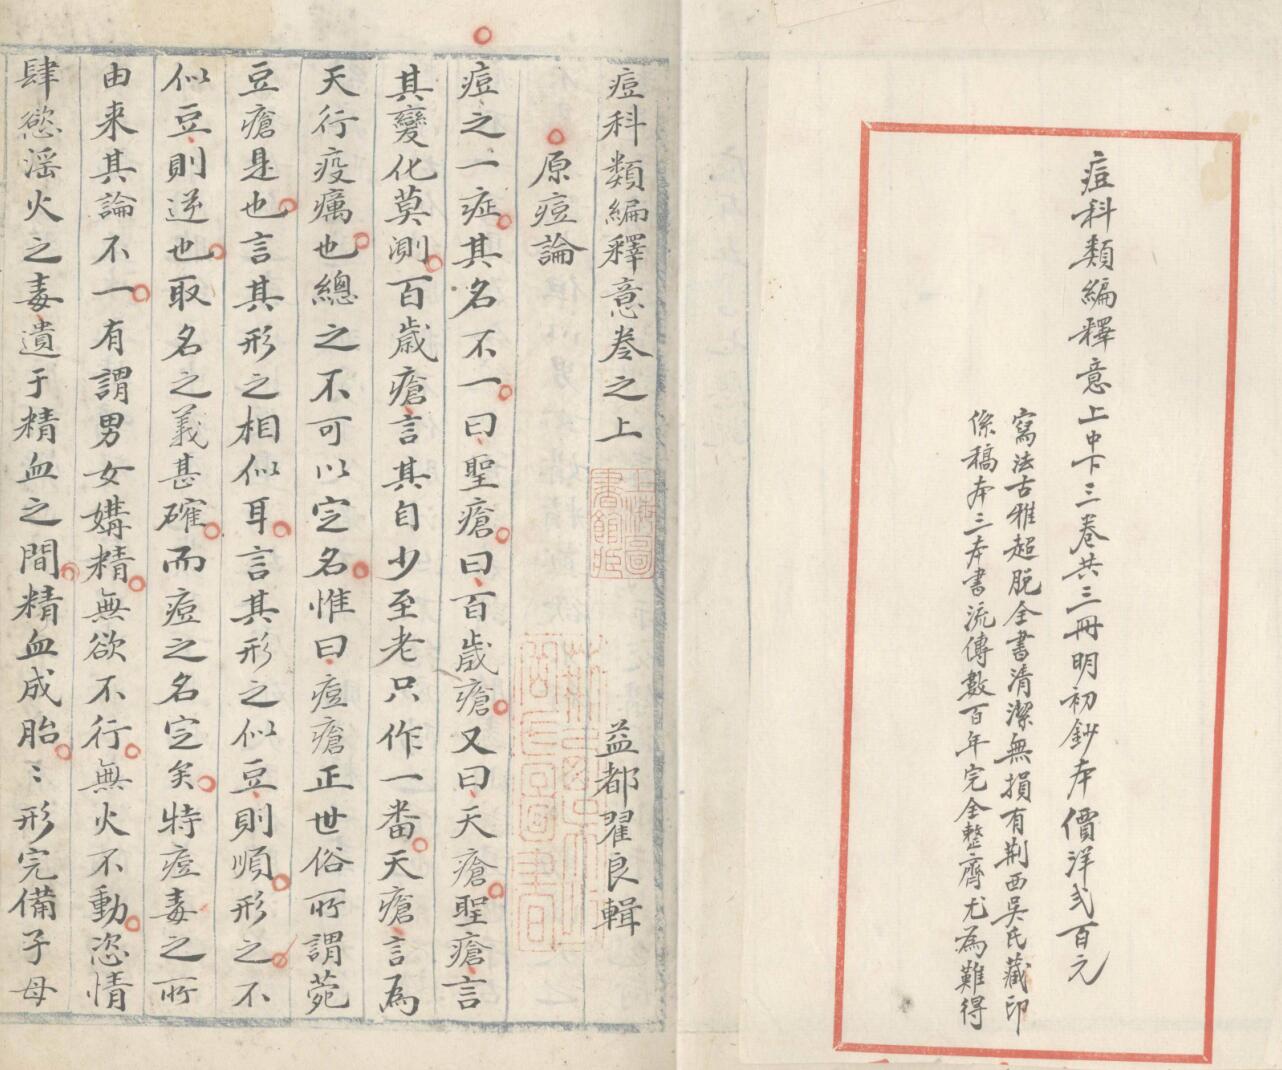 痘科類編釋意上中下三卷共三冊明初鈔本價洋弍百元
寫法古雅超脫全書清潔無損有荆西吳氏藏印
係稿本三本書流傳數百年完全整齊尤為難得
痘科類編釋意卷之上
益都翟良輯
上海圖書館藏
原痘論
痘之一症其名不一曰聖瘡曰百歲瘡又曰天瘡聖瘡言
其變化莫測百歲瘡言其自少至老只作一番天瘡言為
天行疫癘也總之不可以定名惟曰痘瘡正世俗所謂菀
豆瘡是也言其形之相似耳言其形之似豆則順形之不
似豆則逆也取名之義甚確而痘之名定矣特痘毒之所
由来其論不一有謂男女媾精無欲不行無火不動恣情
肆慾滛火之毒遺于精血之間精血成胎〻形完備子母